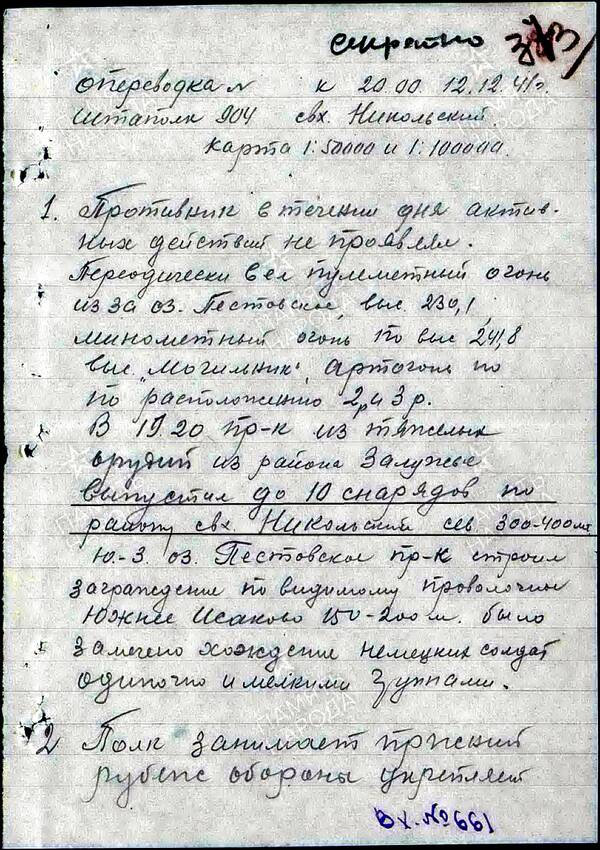 Секретно
Опереводка № к 20.00 12.12.41г.
Штаполк 904 свх. Никольский.
Карта 1:50000 и 1:100000.
1. Противник в течении дня актив-
ных действий не проявлял.
Переодически вел пулеметный огонь
из за оз. Пестовское, выс. 230,1,
минометный огонь по выс 241,8
выс "Могильник", артогонь по
по расположению 2 и 3 р.
В 19.20 пр-к из тяжелых
орудий из района Залужье
выпустил до 10 снарядов по
району свх. Никольский сев 300-400мт
Ю.-З. оз. Пестовское пр-к строил
заграждение по видимому проволочн
Южнее Исаково 150-200м. было
замечено хождение немецких солдат
одиночно и мелкими группами.
2. Полк занимает прежний
рубеж обороны укрепляет
Вх. №661
ПАМЯТЬ НАРОДА